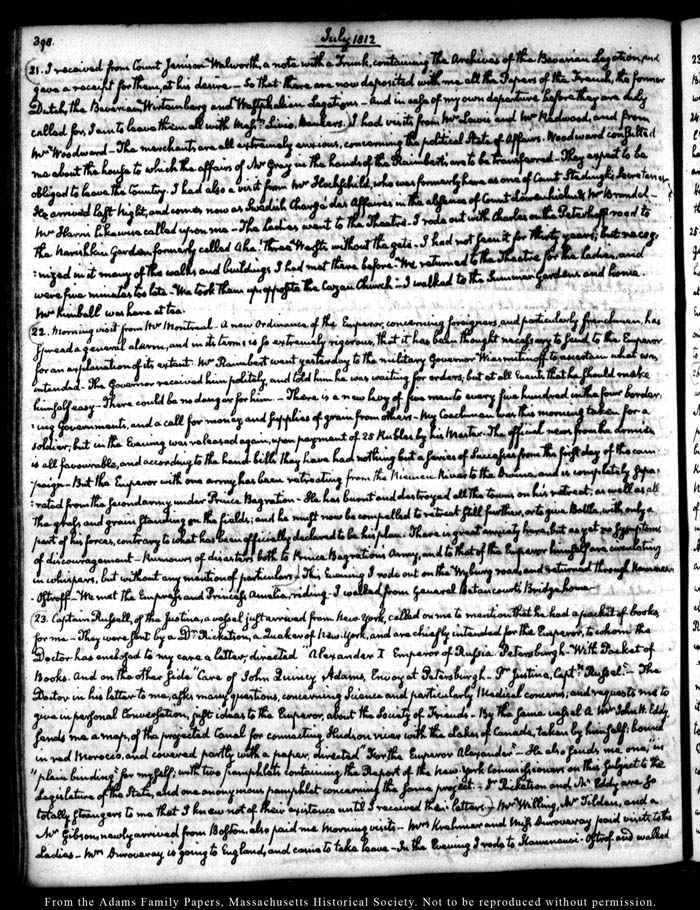 398.
July 1812
21. I received from Count Jennison Walworth, a note with a Trunk, containing the Archives of the Bavarian Legation, and
gave a receipt for them, at his desire — So that there are now deposited with me all the Papers of the French, the former
Dutch, the Bavarian, Wurtemberg and Westphalian Legations — And in case of my own departure before they are duly
called for, I am to leave them all with Mess.rs Livio, Bankers. I had visits from Mr Lewis and Mr Redwood, and from
Mr Woodward — The merchants, are all extremely anxious, concerning the political State of Affairs. Woodward consulted
me about the house to which the affairs of Mr Gray in the hands of the Raimberts, are to be transferred — They expect to be
obliged to leave the Country. I had also a visit from Mr Hochschild, who was formerly here as one of Count Stedingk's Secretaries
He arrived last Night, and comes now as Swedish Chargé des Affaires in the absence of Count Löwenhielm & Mr Brandel —
Mr Harris likewise called upon me — The Ladies went to the Theatre. I rode out with Charles on the Peterhoff road to
the Narishkin Garden formerly called Aha! three Wersts without the gate — I had not seen it for thirty years; but recog-
-nized in it many of the walks and buildings I had met there before — We returned to the Theatre for the Ladies, and
were five minutes too late — We took them up opposite the Cazan Church — I walked to the Summer Gardens and home
Mr Kimball was here at tea.
22. Morning visit from Mr Montreal — A new Ordinance of the Emperor, concerning foreigners, and particularly frenchmen, has
spread a general alarm, and in its terms is so extremely rigorous, that it has been thought necessary to send to the Emperor
for an explanation of its extent. Mr Raimbert went yesterday to the military Governor Wiasmitinoff to ascertain what was
intended. The Governor received him politely, and told him he was waiting for orders, but at all Events that he should make
himself easy — There could be no danger for him. — There is a new levy of five men to every five hundred in the four border-
-ing Governments, and a call for money and supplies of grain from others — My Coachman was this morning taken for a
soldier, but in the Evening was released again, upon payment of 25 Rubles by his Master — The official news from the armies
is all favourable, and according to the hand-bills they have had nothing but a series of Successes from the first day of the cam-
-paign — But the Emperor with one army has been retreating from the Niemen River to the Drissa, and is completely sepa-
-rated from the second army under Prince Bagration — He has burnt and destroyed all the towns on his retreat; as well as all
the grass and grain standing on the fields; and he must now be compelled to retreat still further, or to give Battle, with only a
part of his forces, contrary to what has been officially declared to be his plan. There is great anxiety here, but as yet no symptoms
of discouragement — Rumours of disasters both to Prince Bagration's Army, and to that of the Emperor himself are circulating
in whispers, but without any mention of particulars. This Evening I rode out on the Wyburg road, and returned through Kamennoi-
-Ostroff — We met the Empress and Princess Amelia, riding. I walked from General Betancourt's Bridge home
23. Captain Russell, of the Justina, a vessel just arrived from New-York, called on me to mention that he had a packet of books
for me — They were sent by a Dr. Ricketson, a Quaker of New-York, and are chiefly intended for the Emperor, to whom the
Doctor has enclosed to my care a letter, directed "Alexander I Emperor of Russia Petersburgh — With Packet of
Books. And on the other side "Care of John Quincy Adams, Envoy at Petersburgh. Pr. Justina, Capt.n Russel." — The
Doctor in his letter to me, asks many questions, concerning Science and particularly Medical concerns; and requests me to
give in personal Conversation, just ideas to the Emperor, about the Society of Friends — By the same vessel a Mr John H. Eddy,
sends me a map, of the projected Canal for connecting Hudson river with the Lakes of Canada, taken by himself; bound
in red Morocco, and covered partly with a paper, directed "For the Emperor Alexander" — He also sends me one, in
"plain binding" for myself; with two pamphlets containing the Report of the New-York Commissioners on this subject to the
Legislature of the State, and one anonymous pamphlet concerning the same project — Dr Ricketson and Mr Eddy are so
totally strangers to me that I knew not of their existence until I received their letters. Mr Willing, Mr Tilden, and a
Mr Gibson, newly arrived from Boston, also paid me Morning visits — Mrs Krehmer and Miss Duroveray paid visits, to the
Ladies — Mrs Duroveray is going to England, and came to take leave — In the Evening I rode to Kamenoi-Ostrof and walked
From the Adams Family Papers, Massachusetts Historical Society. Not to be reproduced without permission.